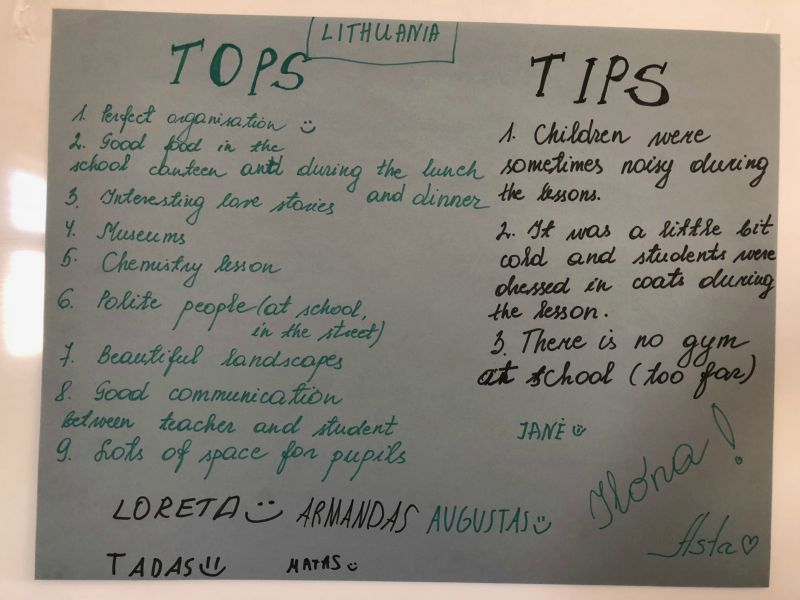 LITHUANIA
TOPS
1. Perfect organisation ☺
2. Good food in the
school canteen and during the lunch
and dinner
3. Interesting love stories
4. Museums
5. Chemistry lesson
6. Polite people (at school,
in the street)
7. Beautiful landscapes
8. Good communication
between teacher and student
9. Lots of space for pupils
TIPS
1. Children were
sometimes noisy during
the lessons.
2. It was a little bit
cold and students were
dressed in coats during
the lesson.
3. There is no gym
at school (too far)
JANĖ ☺
Ilona!
LORETA ☺ ARMANDAS AUGUSTAS ☺
Asta ♡
TADAS!! MATAS ☺